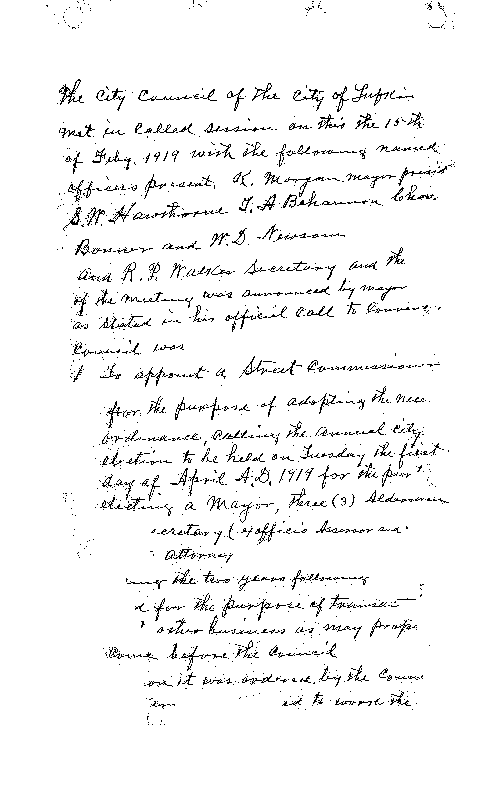 The City Council of the City of Lufkin
met in Called session on this the 15th
of Feby. 1919 with the following named
officers present, K. Morgan mayor presid
S.W. Hawthorne T. A Bohannon Chas.
Bonner and W.D. Newsom
And R. P. Walker Secretary and the
of the meeting was announced by mayor
as stated in his official Call to Convene
Council was
To appoint a Street Commissioner
for the purpose of adopting the nec
ordinance, calling the annual city
election to be held on Tuesday the first
day of April A.D. 1919 for the pur
electing a Mayor, three (3) Aldermen
ecretary (exofficio Assessor and
Attorney
ing the two years following
d for the purpose of transac
other business as may prop
Come before the Council
on it was ordered by the Coun
ed to work the